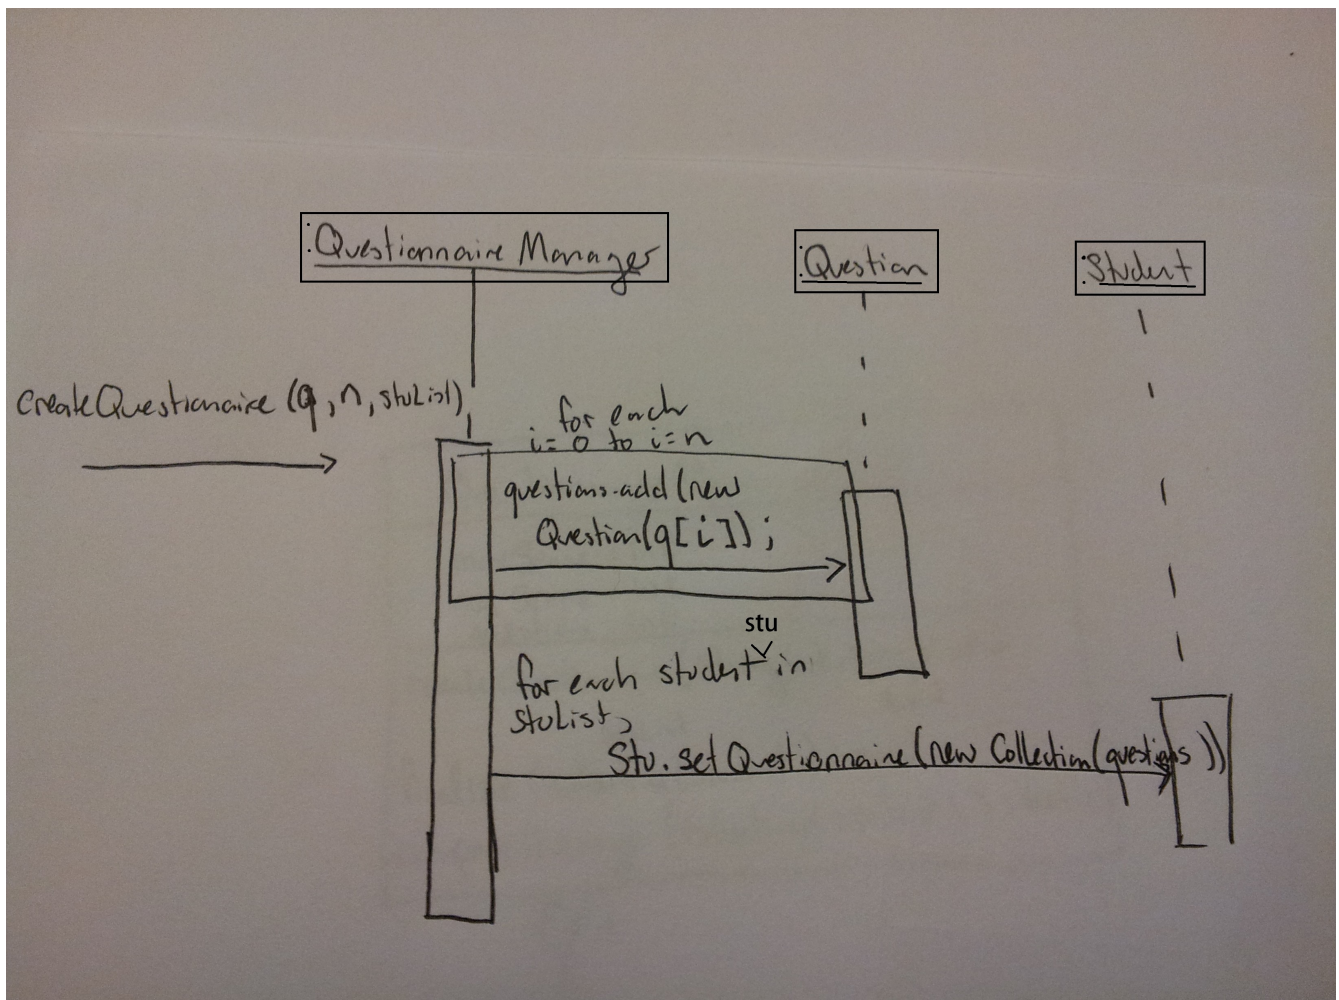 :Questionnaire Manager
:Question
:Student
createQuestionnaire (q, n, stuList)
for each
i= 0 to i=n
questions.add(new
Question(q[i]));
stu
for each student in
stuList,
Stu.setQuestionnaire(new Collection(questions))